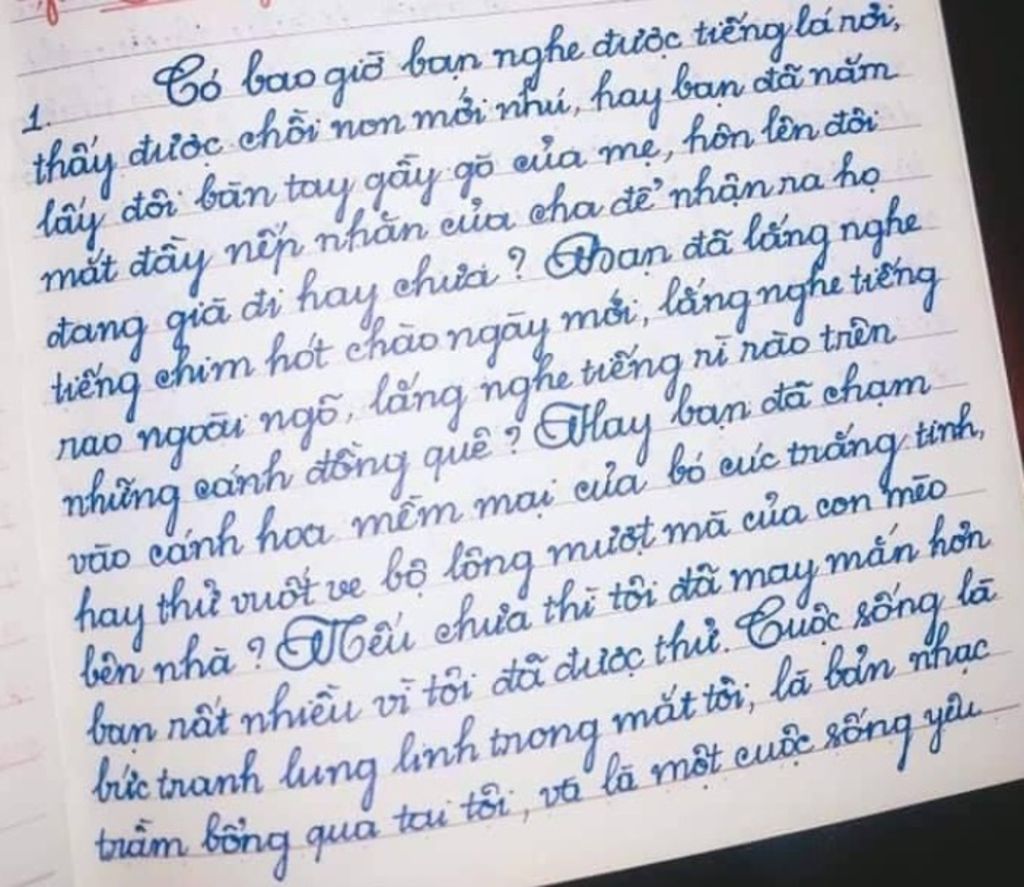 1. Có bao giờ bạn nghe được tiếng lá rơi,
thấy được chồi non mới nhú, hay bạn đã nắm
lấy đôi bàn tay gầy gò của mẹ, hôn lên đôi
mắt đầy nếp nhăn của cha để nhận ra họ
đang già đi hay chưa? Bạn đã lắng nghe
tiếng chim hót chào ngày mới, lắng nghe tiếng
rao ngoài ngõ, lắng nghe tiếng rì rào trên
những cánh đồng quê? Hay bạn đã chạm
vào cánh hoa mềm mại của bó cúc trắng tinh,
hay thử vuốt ve bộ lông mượt mà của con mèo
bên nhà? Nếu chưa thì tôi đã may mắn hơn
bạn rất nhiều vì tôi đã được thử. Cuộc sống là
bức tranh lung linh trong mắt tôi, là bản nhạc
trầm bổng qua tai tôi, và là một cuộc sống yêu